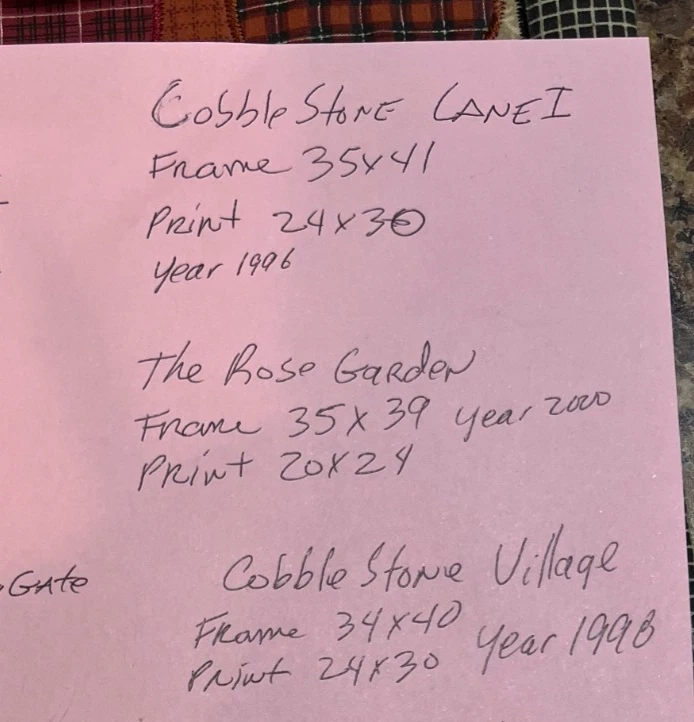 CobbleStone Lane I
Frame 35x41
Print 24x30
year 1996
The Rose Garden
Frame 35x39 year 2000
Print 20x24
Gate
CobbleStone Village
Frame 34x40
Print 24x30 year 1998